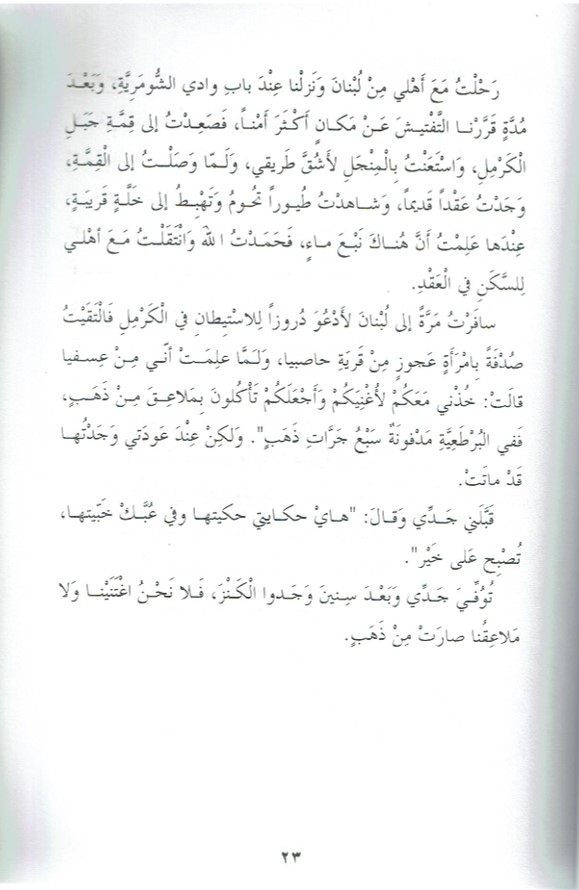 رَحْلْتُ مَعَ أَهْلي مِنْ لُبْنانَ وَنَزلْنا عِنْدَ بابِ وادي الشُّومَرِيَّةِ، وَبَعْدَ
مُدَّةٍ قَرَّرْنا التَّفْتيشَ عَنْ مَكانٍ أَكْثَرَ أَمْناً، فَصَعِدْتُ إلى قِمَّةِ جَبَلِ
الْكَرْمِلِ، وَاسْتَعَنْتُ بِالْمِنْجَلِ لأَشُقَّ طَريقي، وَلَمّا وَصَلْتُ إلى الْقِمَّةِ،
وَجَدْتُ عَقْداً قَديماً، وَشاهدْتُ طُيوراً تَحُومُ وَتَهْبِطُ إلى خَلَّةٍ قَريبَةٍ،
عِنْدَها عَلِمْتُ أَنَّ هُناكَ نَبْعَ ماءٍ، فَحَمَدْتُ اللهَ وَانْتَقَلْتُ مَعَ أهْلي
لِلسَّكَنِ في الْعَقْدِ.
سافَرْتُ مَرَّةً إلى لُبْنانَ لأَدْعُوَ دُروزاً لِلاسْتِيطانِ في الْكَرْمِلِ فَالْتَقَيْتُ
صُدْفَةً بِامْرَأَةٍ عَجوزٍ مِنْ قَريَةِ حاصبيا، وَلَمَّا عَلِمَتْ أنّي مِنْ عِسفيا
قالَتْ: خُذْني مَعَكُمْ لأُغْنِيَكُمْ وَأَجْعَلَكُمْ تَأْكُلونَ بِمَلاعِقَ مِنْ ذَهَبٍ،
فَفي البُرْطَعِيَّةِ مَدْفونَةٌ سَبْعُ جَرَّاتِ ذَهَبٍ". وَلكِنْ عِنْدَ عَودَتي وَجَدْتُها
قَدْ ماتَتْ.
قَبَّلَني جَدِّي وَقالَ: "هايْ حكايتي حكيتها وفي عُبَّكْ خَبّيتها،
تُصْبِح عَلى خَيْر".
تُوُفِّيَ جَدِّي وَبَعْدَ سِنينَ وَجَدوا الْكَنْزَ، فَلا نَحْنُ اغْتَنَيْنا وَلا
مَلاعِقُنا صارَتْ مِنْ ذَهَبٍ.
٢٣